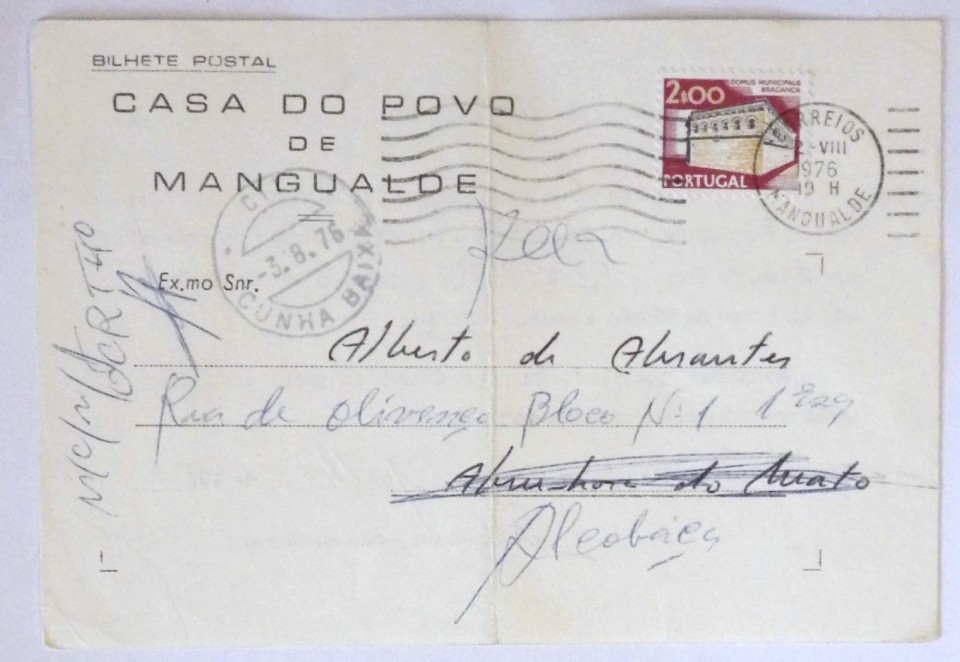 BILHETE POSTAL
CASA DO POVO
DE
MANGUALDE
2$00
DOMUS MUNICIPALIS
BRAGANÇA
PORTUGAL
CORREIOS
2-VIII
1976
19 H
MANGUALDE
-3.8.76
CUNHA BAIXA
Ex.mo Snr.
Alberto de Abrantes
Rua de Olivença Bloco Nº 1 1º
do Mato
Alcobaça